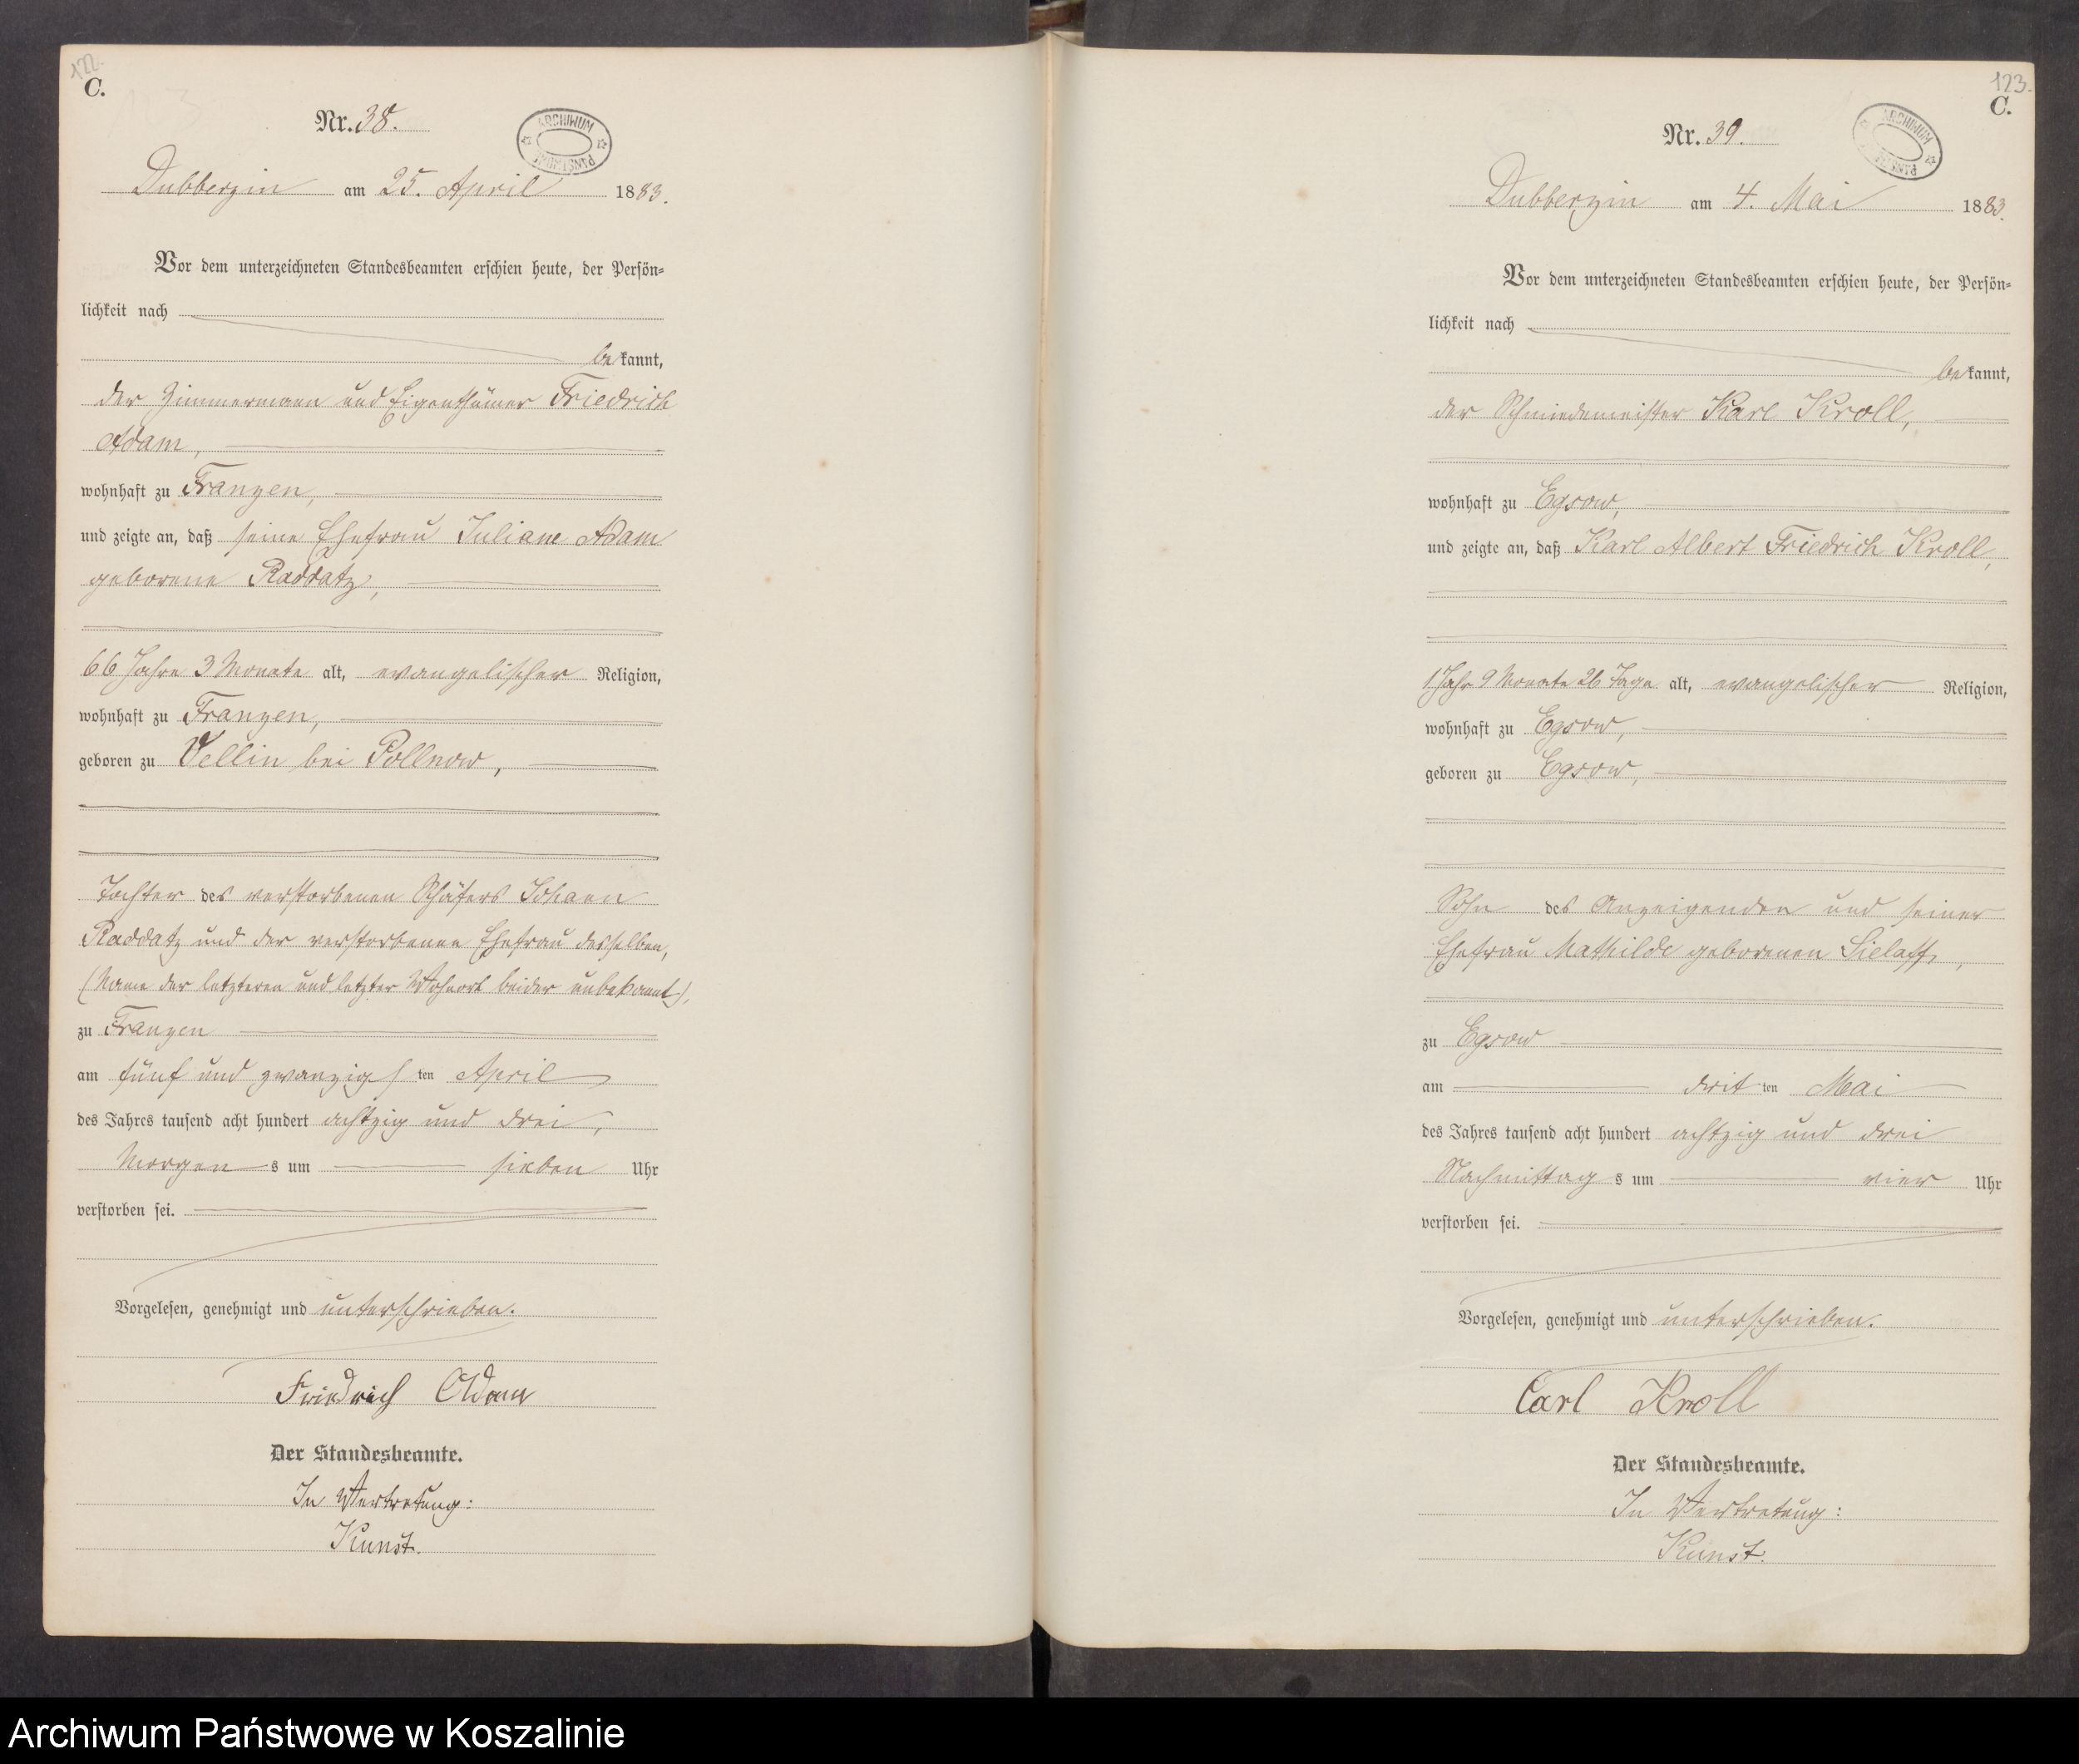 122.
C.
Nr. 38.
ARCHIWUM PAŃSTWOWE
Dubberzin am 25. April 1883.
Vor dem unterzeichneten Standesbeamten erschien heute, der Persön-
lichkeit nach
bekannt,
der Zimmermann und Eigenthümer Friedrich
Adam,
wohnhaft zu Franzen,
und zeigte an, daß seine Ehefrau Juliane Adam
geborene Raddatz,
66 Jahre 3 Monate alt, evangelischer Religion,
wohnhaft zu Franzen,
geboren zu Vellin bei Pollnow,
Tochter des verstorbenen Schäfers Johann
Raddatz und der verstorbenen Ehefrau desselben,
(Name der letzteren und letzter Wohnort beider unbekannt),
zu Franzen
am fünf und zwanzigsten April
des Jahres tausend acht hundert achtzig und drei,
Morgens um sieben Uhr
verstorben sei.
Vorgelesen, genehmigt und unterschrieben.
Friedrich Adam
Der Standesbeamte.
In Vertretung:
Kunst.
123.
C.
Nr. 39.
ARCHIWUM PAŃSTWOWE
Dubberzin am 4. Mai 1883.
Vor dem unterzeichneten Standesbeamten erschien heute, der Persön-
lichkeit nach
bekannt,
der Schmiedemeister Karl Kroll,
wohnhaft zu Egsow,
und zeigte an, daß Karl Albert Friedrich Kroll,
1 Jahr 9 Monate 26 Tage alt, evangelischer Religion,
wohnhaft zu Egsow,
geboren zu Egsow,
Sohn des Anzeigenden und seiner
Ehefrau Mathilde geborenen Sielaff,
zu Egsow
am dritten Mai
des Jahres tausend acht hundert achtzig und drei
Nachmittags um vier Uhr
verstorben sei.
Vorgelesen, genehmigt und unterschrieben.
Carl Kroll
Der Standesbeamte.
In Vertretung:
Kunst.
Archiwum Państwowe w Koszalinie